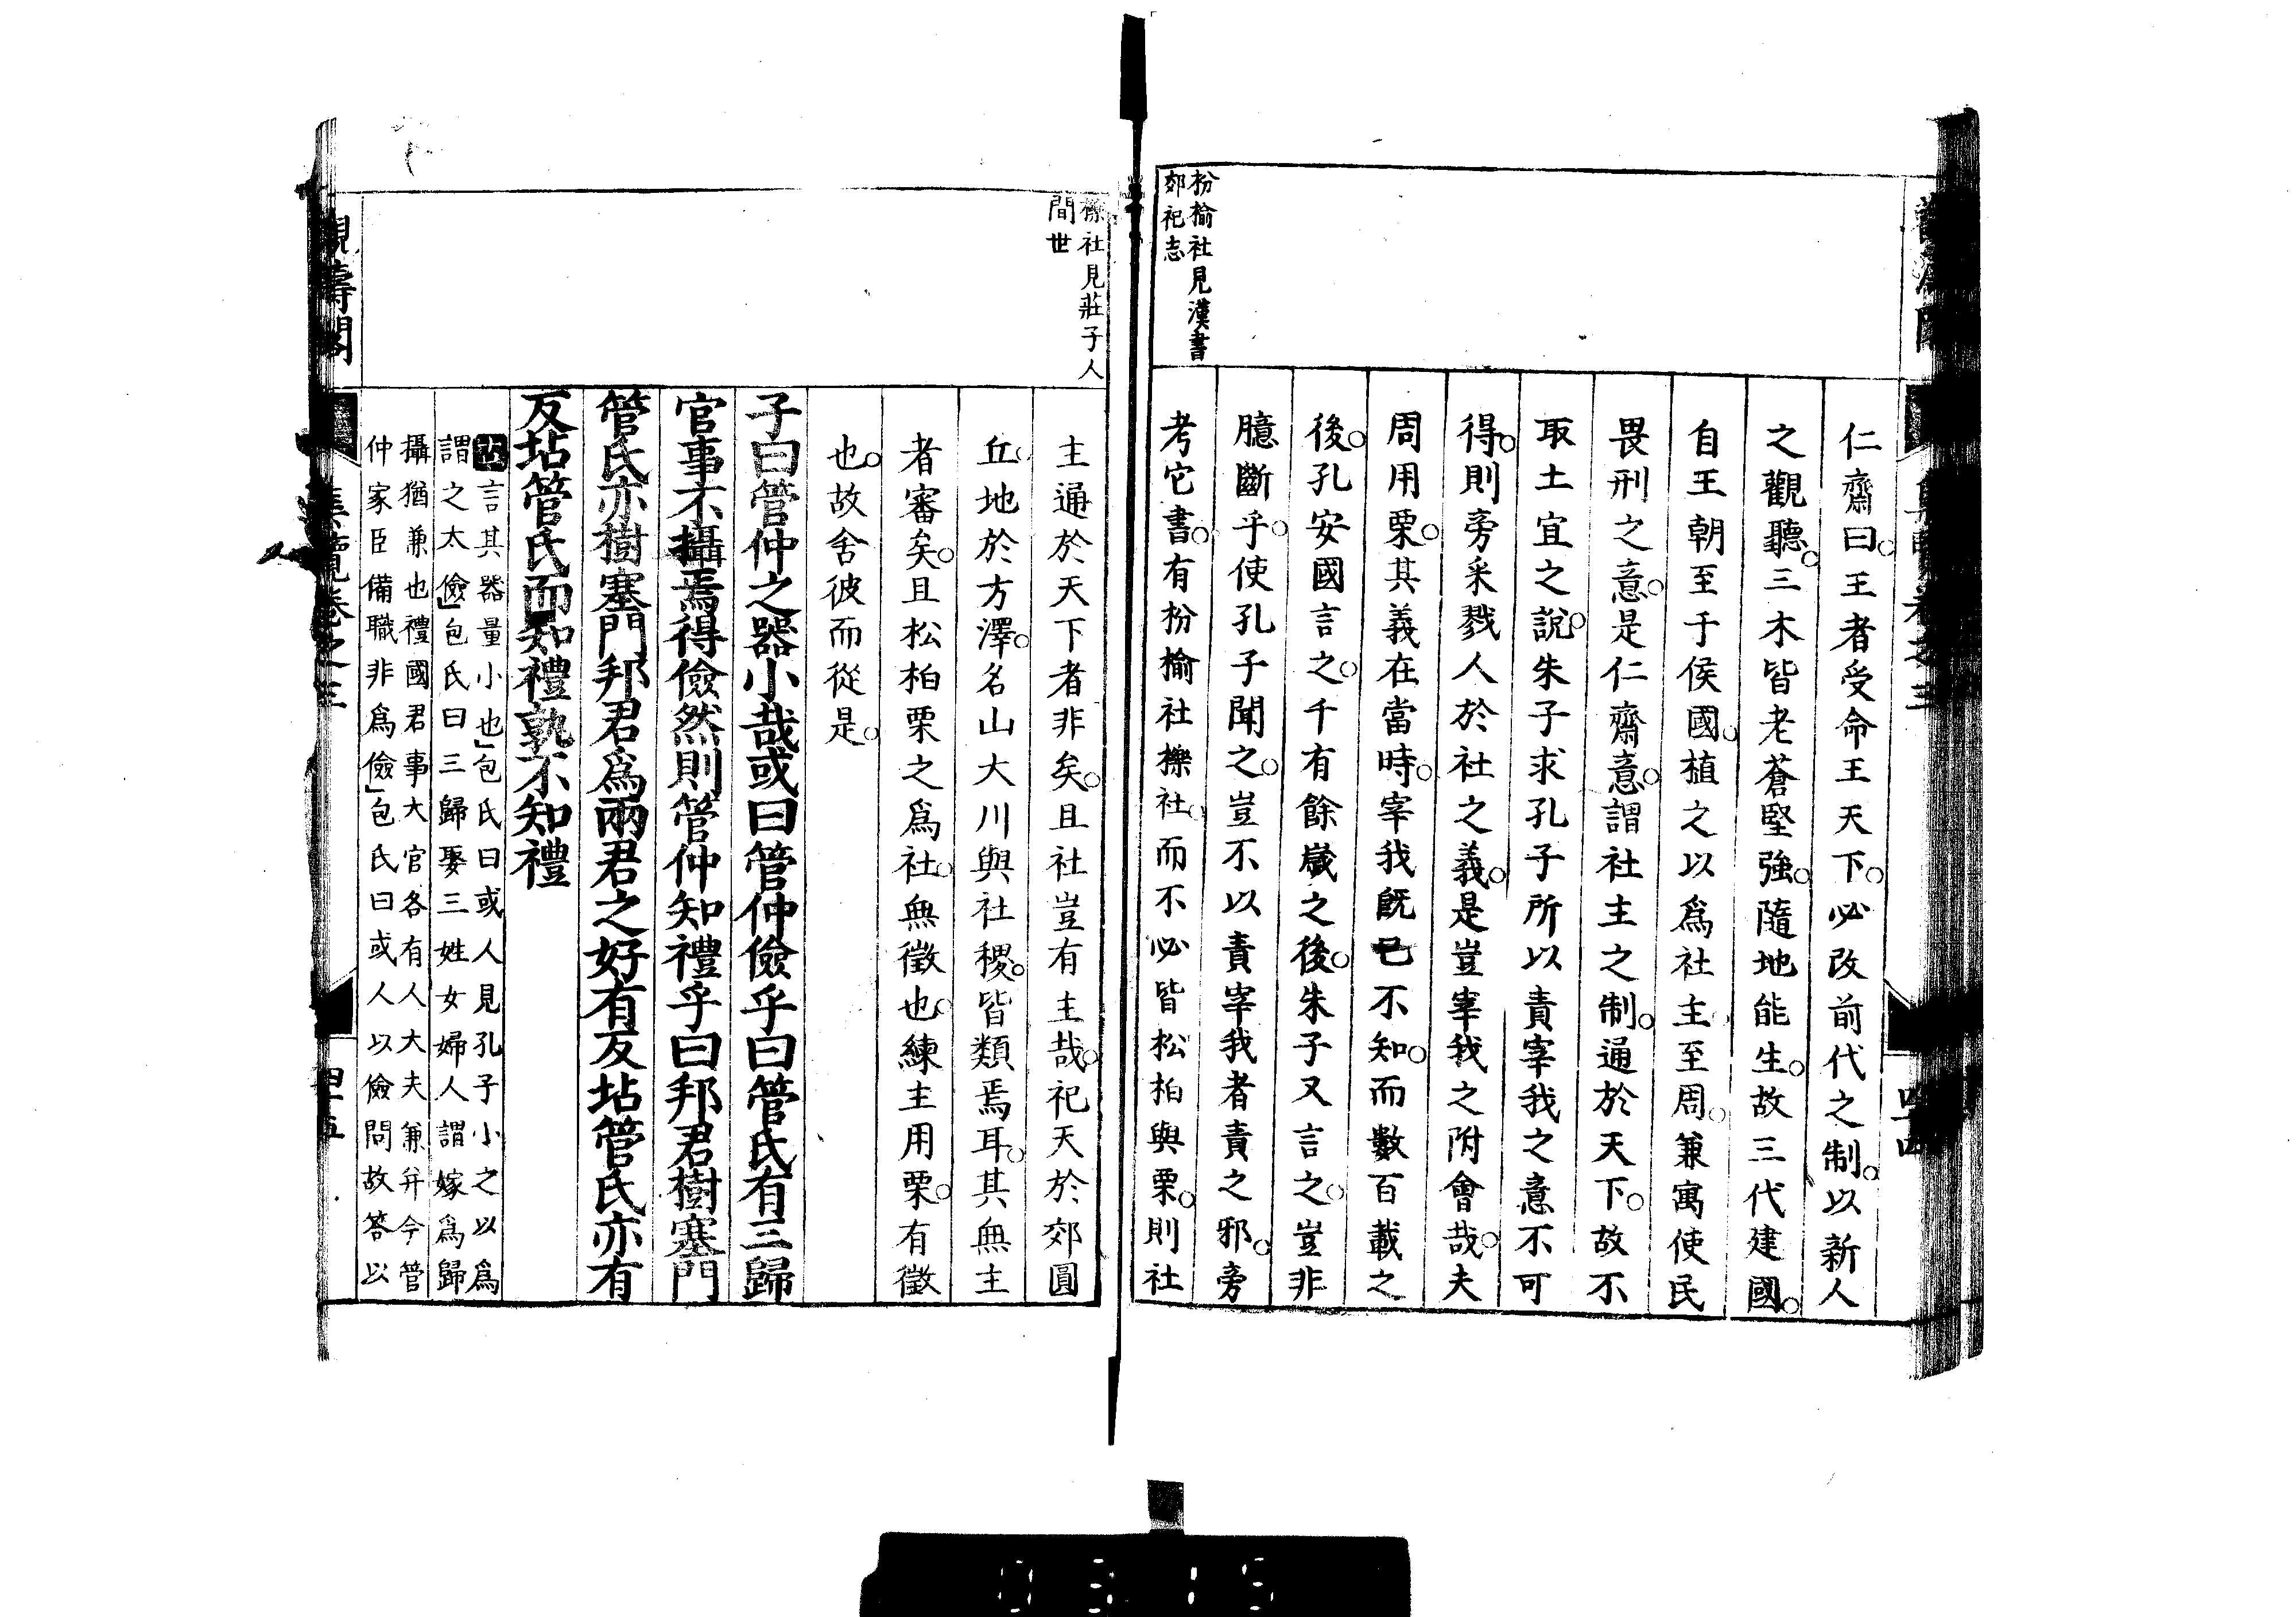 仁齋曰。王者受命王天下。必改前代之制。以新人
之觀聽。三木皆老蒼堅強。隨地能生。故三代建國。
自王朝至于侯國。植之以爲社主。至周。兼寓使民
畏刑之意。是仁齋意。謂社主之制。通於天下。故不
取土宜之說。朱子求孔子所以責宰我之意不可
得。則旁采戮人於社之義。是豈宰我之附會哉。夫
周用栗。其義在當時。宰我旣已不知。而數百載之
後。孔安國言之。千有餘歲之後。朱子又言之。豈非
臆斷乎。使孔子聞之。豈不以責宰我者責之邪。旁
考它書。有枌榆社櫟社。而不必皆松柏與栗。則社
枌榆社見漢書
郊祀志
櫟社見莊子人
間世
主通於天下者非矣。且社豈有主哉。祀天於郊圓
丘。地於方澤。名山大川與社稷。皆類焉耳。其無主
者審矣。且松柏栗之爲社。無徵也。練主用栗。有徵
也。故舍彼而從是。
子曰管仲之器小哉或曰管仲儉乎曰管氏有三歸
官事不攝焉得儉然則管仲知禮乎曰邦君樹塞門
管氏亦樹塞門邦君爲兩君之好有反坫管氏亦有
反坫管氏而知禮孰不知禮
古言其器量小也」包氏曰或人見孔子小之以爲
謂之太儉」包氏曰三歸娶三姓女婦人謂嫁爲歸
攝猶兼也禮國君事大官各有人大夫兼并今管
仲家臣備職非爲儉」包氏曰或人以儉問故答以
觀濤閣
集覽卷之三
四五